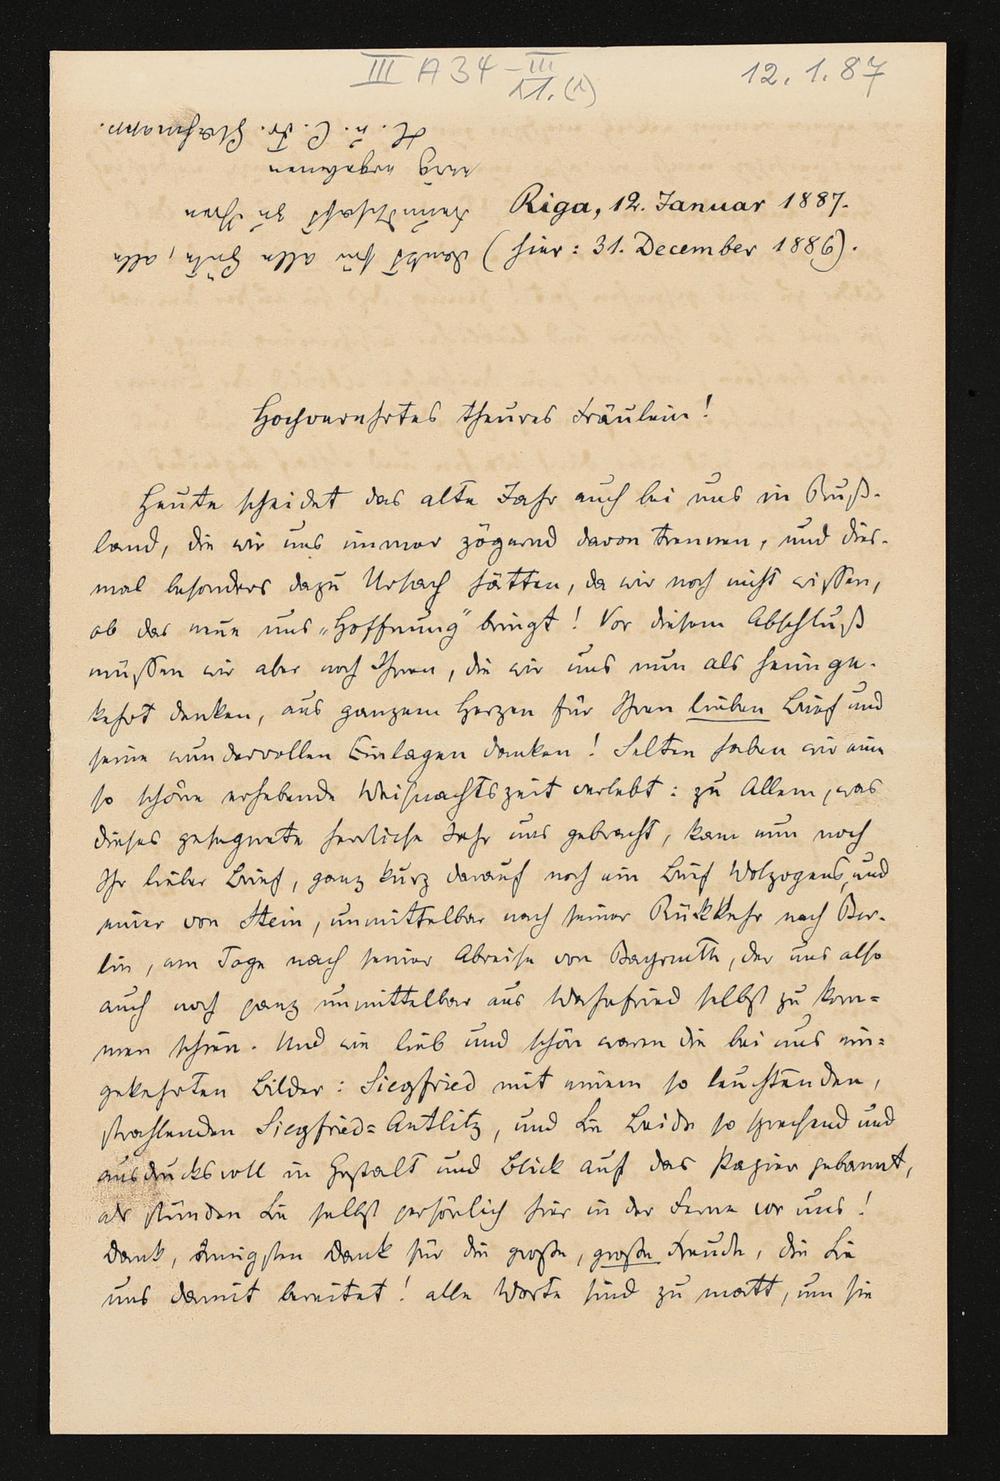 III A 34 - III
11.(1)
12. 1. 87
Riga, 12. Januar 1887.
(hier: 31. December 1886).
Hochverehrtes theures Fräulein!
Heute scheidet das alte Jahr auch bei uns in Ruß-
land, die wir uns immer zögernd davon trennen, und dies-
mal besonders dazu Ursach hätten, da wir noch nicht wissen,
ob das neue uns „Hoffnung" bringt! Vor diesem Abschluß
müssen wir aber noch Ihnen, die wir uns nun als heimge-
kehrt denken, aus ganzem Herzen für Ihren lieben Brief und
seine wundervollen Einlagen danken! Selten haben wir eine
so schöne erhebende Weihnachtszeit verlebt: zu Allem, was
dieses gesegnete herrliche Jahr uns gebracht, kam nun noch
Ihr lieber Brief, ganz kurz darauf noch ein Brief Wolzogens, und
einer von Stein, unmittelbar nach seiner Rückkehr nach Ber-
lin, am Tage nach seiner Abreise von Bayreuth, der uns also
auch noch ganz unmittelbar aus Wahnfried selbst zu kom=
men schien. Und wie lieb und schön waren die bei uns ein=
gekehrten Bilder: Siegfried mit einem so leuchtenden,
strahlenden Siegfried=Antlitz, und Sie Beide so sprechend und
ausdrucksvoll in Gestalt und Blick auf das Papier gebannt,
als stünden Sie selbst persönlich hier in der Ferne vor uns!
Dank, innigsten Dank für die große, große Freude, die Sie
uns damit bereitet! alle Worte sind zu matt, um sie
dankt für alle Güte, alle
Freundschaft zu Ihren
ewig ergebenen
H. u. C. Fr. Glasenapp.